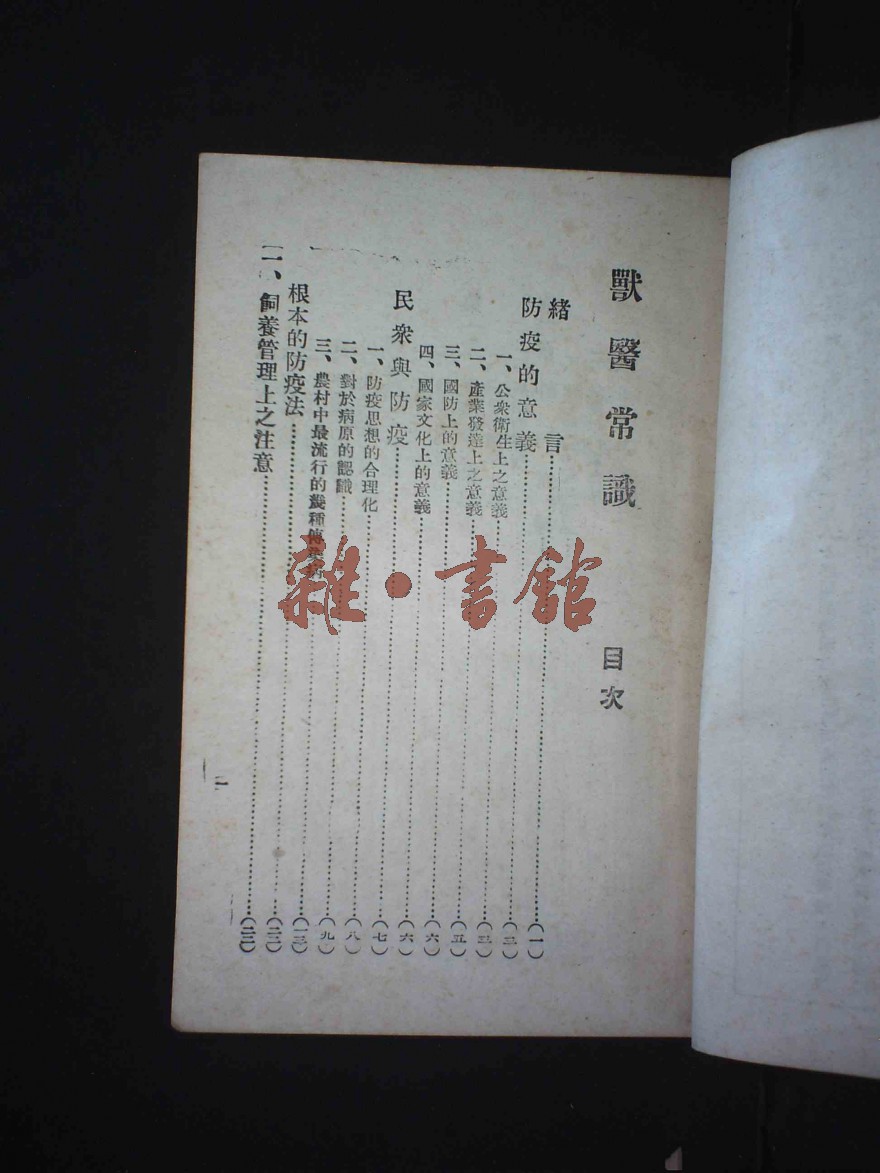 獸醫常識 目次
緒言……(一)
防疫的意義……(二)
一、公衆衛生上之意義……(三)
二、產業發達上之意義……(五)
三、國防上的意義……(六)
四、國家文化上的意義……(六)
民衆與防疫……(七)
一、防疫思想的合理化……(八)
二、對於病原的認識……(九)
三、農村中最流行的幾種傳染病……(一三)
根本的防疫法……
一、飼養管理上之注意……
一
雜·書館